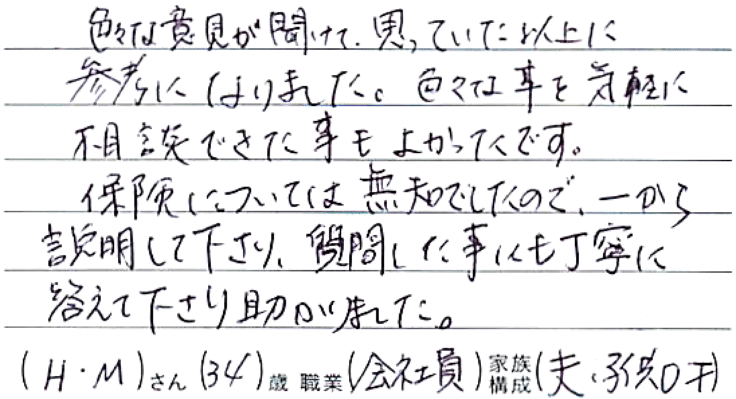 色々な意見が聞けて、思っていた以上に
参考になりました。色々な事を気軽に
相談できた事もよかったです。
保険については無知でしたので、一から
説明して下さり、質問した事にも丁寧に
答えて下さり助かりました。
(H・M)さん(34)歳 職業(会社員)家族構成(夫、子供0才)